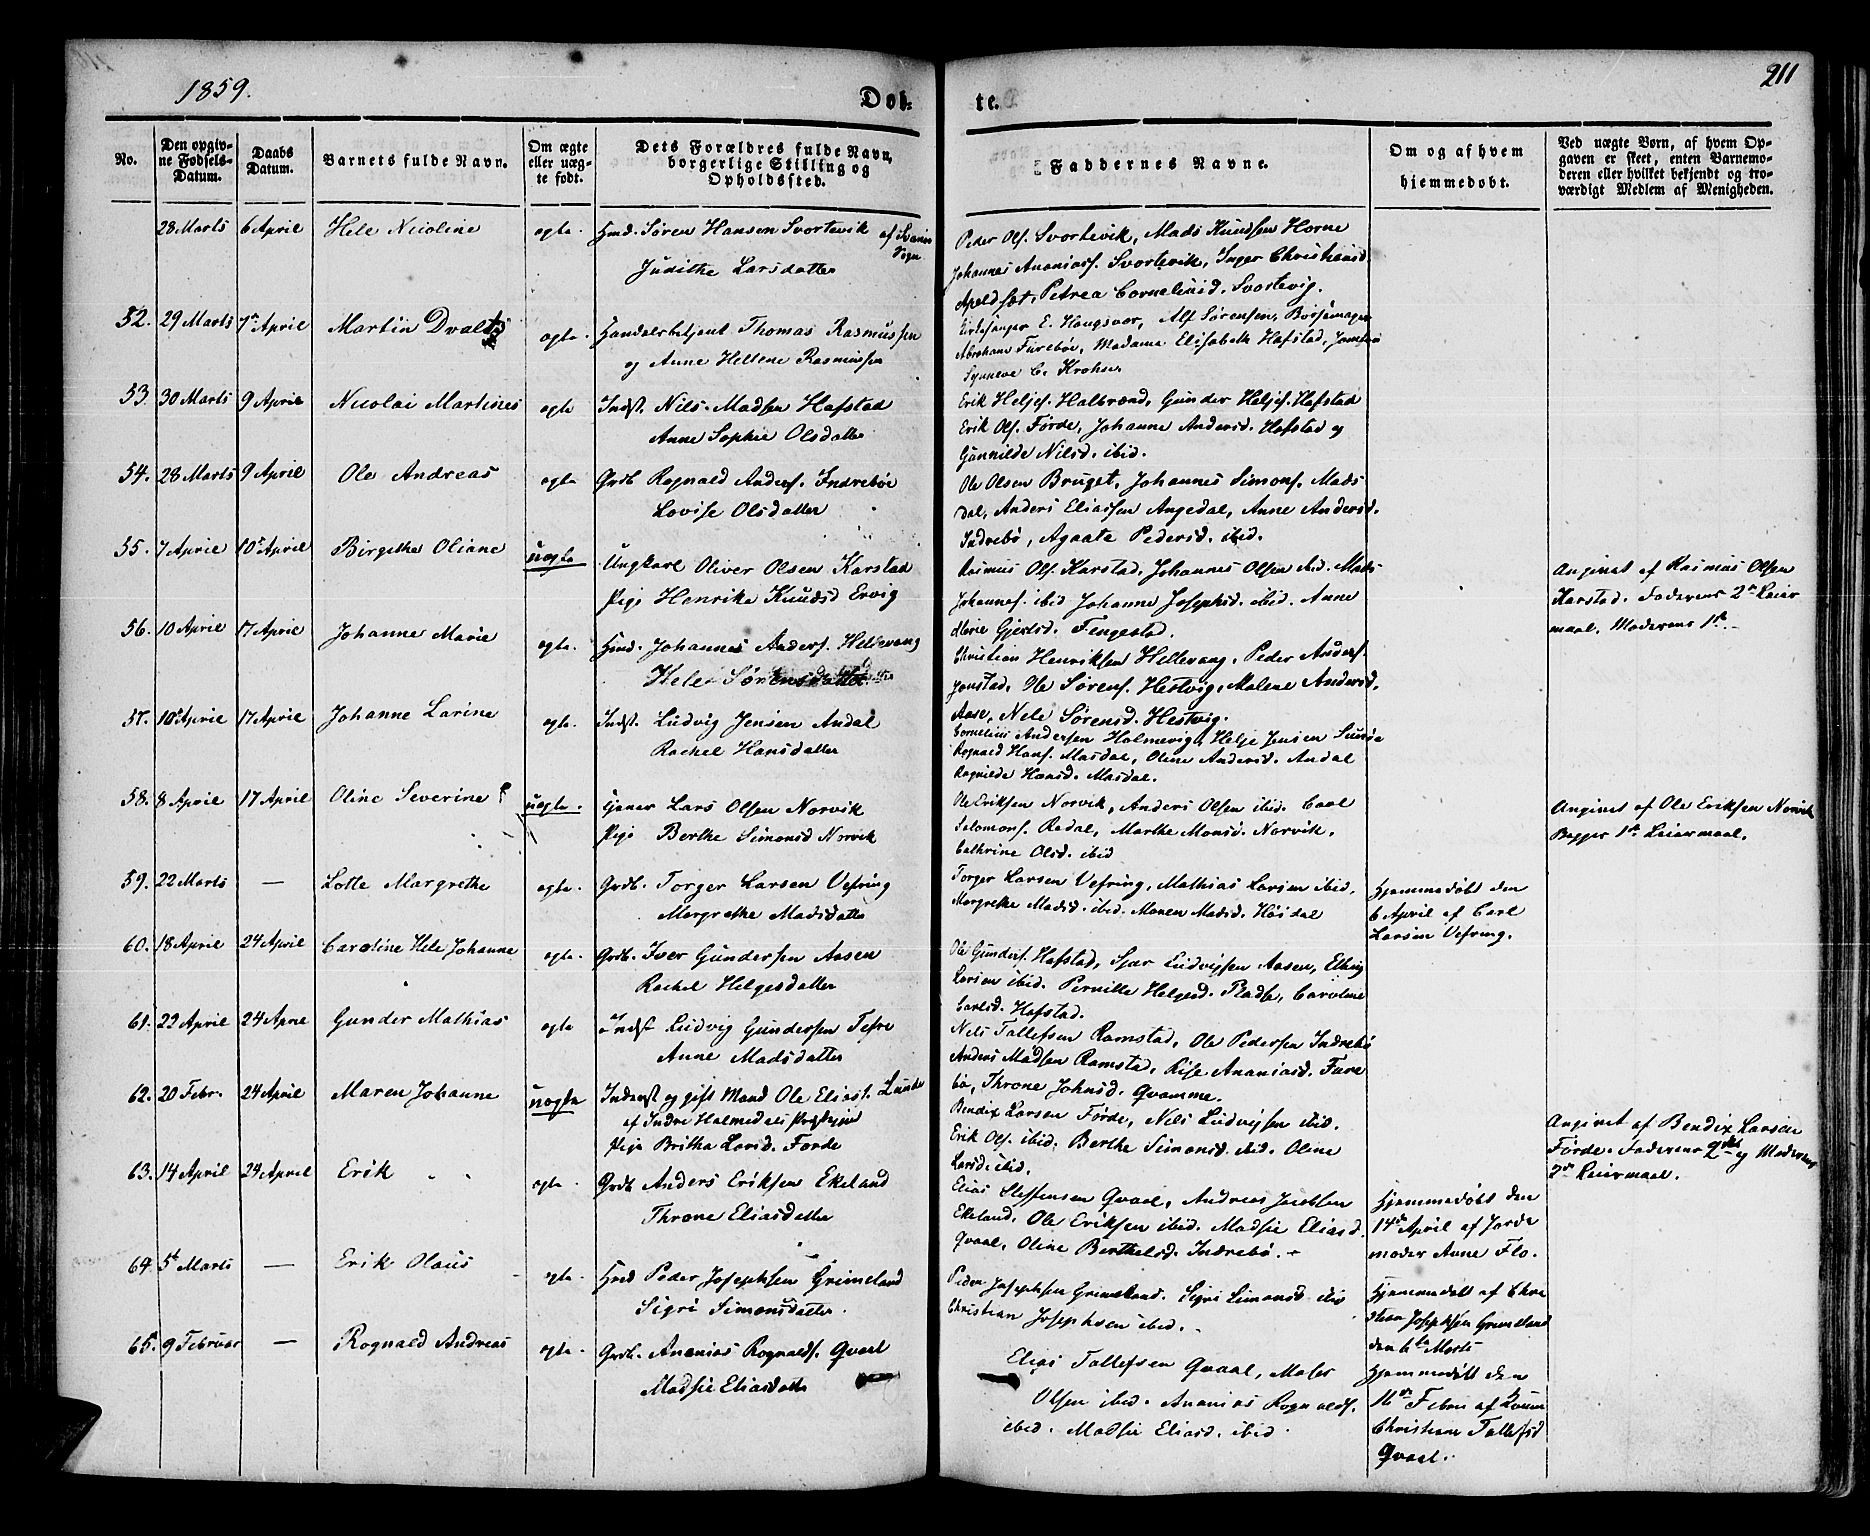 1859.
Døb-
te.
211
No.
Den opgiv-
ne Fødsels-
Datum.
Daabs
Datum.
Barnets fulde Navn.
Om ægte
eller uæg-
te født.
Dets Forældres fulde Navn,
borgerlige Stilling og
Opholdssted.
Faddernes Navne.
Om og af hvem
hjemmedøbt.
Ved uægte Børn, af hvem Op-
gaven er skeet, enten Barnemo-
deren eller hvilket bekjendt og tro-
værdigt Medlem af Menigheden.
28 Marts 6 April Hele Nicoline ægte Søren Hansen Svortevik af
Judithe Larsdatter
Peder Ols. Svortevik, Mads Knudsen Horne
Johannes Ananiass. Svortevik, Inger Christiansd.
Apeldsæt, Petrea Corneliusd. Svortevig.
52. 29 Marts 7de April Martin ægte Handelsbetjent Thomas Rasmussen
og Anne Hellene Rasmussen
Kirkesanger E. Haugsvær, Alf Sørensen, Bøssemager
Abraham Furebøe, Madame Elisabeth Hafstad, Jomfru
Synneve C. Krohn
53. 30 Marts 9 April Nicolai Martines ægte Indst. Nils Madsen Hafstad
Anne Sophie Olsdatter
Erik Heljes. Halbrænd, Gunder Heljes. Hafstad
Erik Ols. Førde, Johanne Andersd. Hafstad og
Gunnilde Nilsd. ibid.
54. 28 Marts 9 April Ole Andreas ægte Grdb. Rognald Anders. Indrebøe
Lovise Olsdatter
Ole Olsen Bruget, Johannes Simons. Mads
dal, Anders Eliassen Angedal, Anne Andersd.
Indrebø, Agaate Pedersd. ibid.
55. 7 April 10de April Birgethe Oliane uægte Ungkarl Oliver Olsen Karstad
Pige Henrika Knudsd Ervig
Rasmus Ols. Karstad, Johannes Olsen ibid. Mads
Johannes. ibid Johanne Josephsd. ibid. Anne
Marie Gjertsd. Fengestad.
Angivet af Rasmus Olsen
Karstad. Faderens 2de Leier
maal. Moderens 1ste
56. 10 April 17 April Johanne Marie ægte Hmd. Johannes Anders. Hellevang
Hele Sørensdatter
Christian Henriksen Hellevang, Peder Anders.
Jonstad, Ole Sørens. Hestvig, Malene Andersd.
Aase, Nele Sørensd. Hestvig.
57. 10 April 17 April Johanne Larine ægte Indst. Ludvig Jensen Andal
Rachel Hansdatter
Cornelius Andersen Holmevig, Helje Jensen Sunde
Rognald Hans. Masdal, Oline Andersd. Andal
Ragnilde Hansd. Masdal.
58. 8 April 17 April Oline Severine uægte Lars Olsen Norvik
Pige Berthe Simonsd Norvik
Ole Eriksen Norvik, Anders Olsen ibid. Carl
Salomons. Rødal, Marthe Monsd. Norvik,
Cathrine Olsd. ibid
Angivet af Ole Eriksen Norvik
Begges 1ste Leiermaal.
59. 22 Marts — Lotte Margrethe ægte Grdb. Torger Larsen Vefring
Margrethe Madsdatter
Torger Larsen Vefring, Mathias Larsen ibid,
Margrethe Madsd. ibid. Maren Madsd. Høidal
Hjemmedøbt den
6 April af Carl
Larsen Vefring.
60. 18 April 24 April Caroline Hele Johanne ægte Grdb. Iver Gundersen Aasen
Rachel Helgesdatter
Ole Gunders. Hafstad, Ludvigsen Aasen, Elling
Larsen ibid. Pernille Helgesd. Pladse, Caroline
Carlsd. Hafstad.
61. 22 April 24 April Gunder Mathias ægte Indst Ludvig Gundersen Tefre
Anne Madsdatter
Nils Tollefsen Ramstad, Ole Pedersen Indrebø
Anders Madsen Ramstad, Lise Ananiasd. Fure
bø, Throne Johnsd. Qvamme.
62. 20 Febr. 24 April Maren Johanne uægte Inderst og gift Mand Ole Elias. Lunde
af Indre Holmedals Prgjeld
Pige Britha Larsd. Førde
Bendix Larsen Førde, Nils Ludvigsen ibid.
Erik Ols. ibid. Berthe Simonsd. ibid. Oline
Larsd. ibid.
Angivet af Bendix Larsen
Førde. Faderens 2det og Moderens
2de Leiermaal.
63. 14 April 24 April Erik ægte Grdb Anders Eriksen Ekeland
Throne Eliasdatter
Elias Steffensen Qvaal, Andreas Jacobsen
Ekeland, Ole Eriksen ibid. Madsie Eliasd.
Qvaal, Oline Berthelsd. Indrebø.
Hjemmedøbt den
14de April af Jorde
moder Anne Flo.
64. 5te Marts — Erik Olaus ægte Peder Josephsen Grimeland
Sigri Simonsdatter.
Peder Josephsen Grimeland. Sigri Simonsd ibid
Christian Josephsen ibid.
Hjemmedøbt af Chri
stian Josephsen Grimeland
den 6te Marts
65. 9 Februar — Rognald Andreas ægte Grdb. Ananias Rognalds. Qvaal
Madsie Eliasdatter
Elias Tollefsen Qvaal, Moses
Olsen ibid. Ananias Rognalds.
ibid. Madsie Eliasd. ibid.
Hjemmedøbt den
16de Febru af
Christiane Tollefsd
Qvaal.